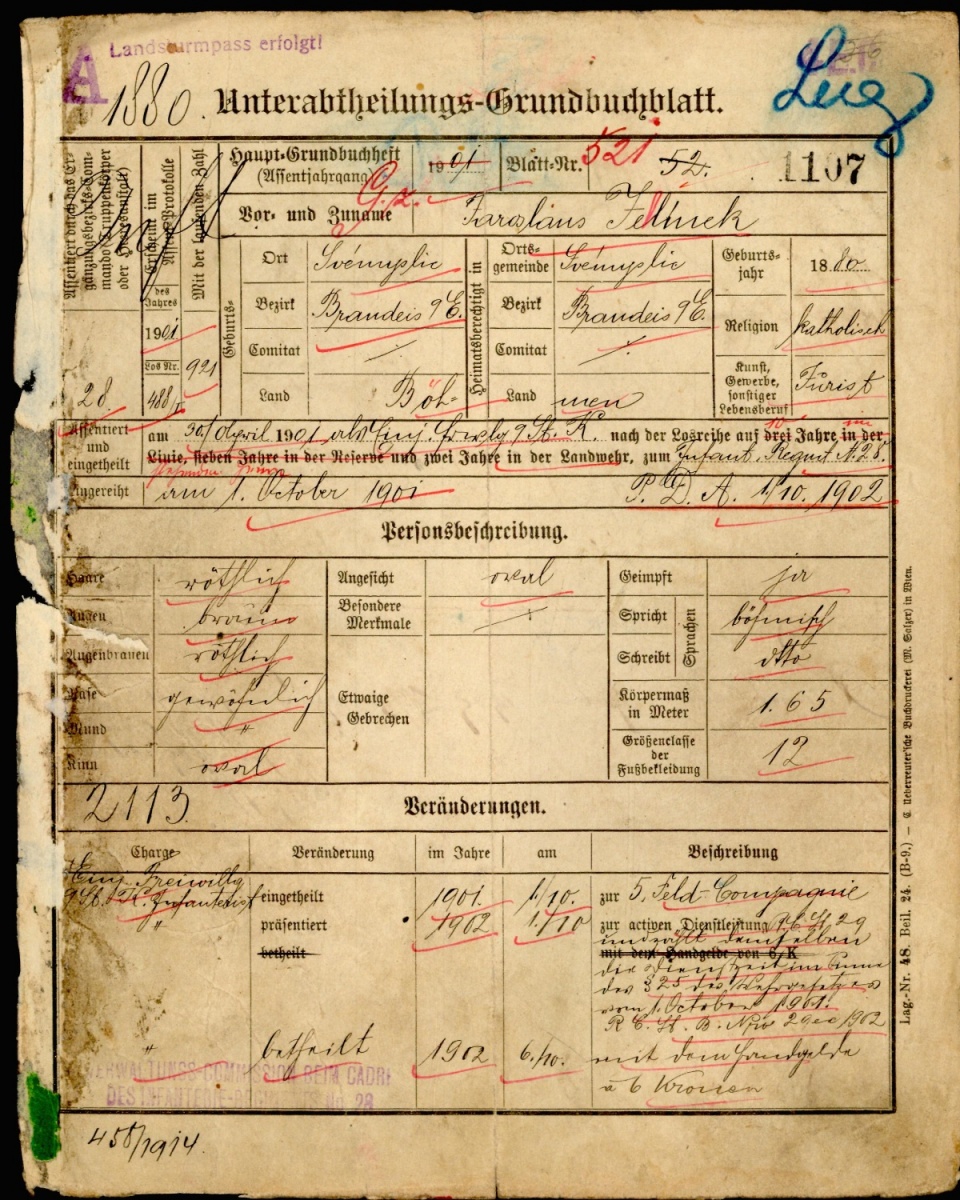 Landsturmpass erfolgt!
A
1880.
Unterabtheilungs-Grundbuchblatt.
Assentiert durch das Ergänzungsbezirks-Commando (Truppenkörper oder Heeresanstalt)
28
Erscheint im Assent-Protokolle
des Jahres
1901
Los Nr.
488/I
Mit der laufenden Zahl
921
Haupt-Grundbuchheft
(Assentjahrgang)
1901
Blatt-Nr.
521
52.
1107
Vor- und Zuname
Jaroslaus Jelinek
Geburts-
Ort
Svémyslic
Bezirk
Brandeis a/E.
Comitat
Land
Böh-
Heimatsberechtigt in
Ortsgemeinde
Svémyslic
Bezirk
Brandeis a/E.
Comitat
Land
men
Geburtsjahr
1880
Religion
katholisch
Kunst, Gewerbe, sonstiger Lebensberuf
Jurist
Assentiert und eingetheilt
am 30/ April 1901 als Einj. Freiwlg a. St. K. nach der Losreihe auf drei Jahre in der
Linie, sieben Jahre in der Reserve und zwei Jahre in der Landwehr, zum Infant. Regmt N. 28.
Eingereiht
am 1. October 1901
P. D. A. 1/10. 1902
Personsbeschreibung.
Haare
röthlich
Augen
braun
Augenbrauen
röthlich
Nase
gewöhnlich
Mund
"
Kinn
oval
Angesicht
oval
Besondere Merkmale
Etwaige Gebrechen
Geimpft
ja
Spricht
böhmisch
Schreibt
dtto
Sprachen
Körpermaß in Meter
1.65
Größenclasse der Fußbekleidung
12
2113
Veränderungen.
Charge
Veränderung
im Jahre
am
Beschreibung
Einj. Freiwillg
a. St. K. Infanterist
eingetheilt
1901.
1/10.
zur 5 Feld-Compagnie
"
präsentiert
1902
1/10
zur activen Dienstleistung
und zählt demselben
betheilt
mit dem Handgelde von 6 K
die Dienstzeit im Sinne
des § 25 des Wehrgesetzes
vom 1. October 1901.
"
betheilt
1902
6/10.
mit dem Handgelde
à 6 Kronen
VERWALTUNGS-COMMISSION BEIM CADRE
DES INFANTERIE-REGIMENTS No. 28
458/1914.
Lag.-Nr. 48. Beil. 24. (B-9.) — C. Ueberreuter'sche Buchdruckerei (M. Salzer) in Wien.